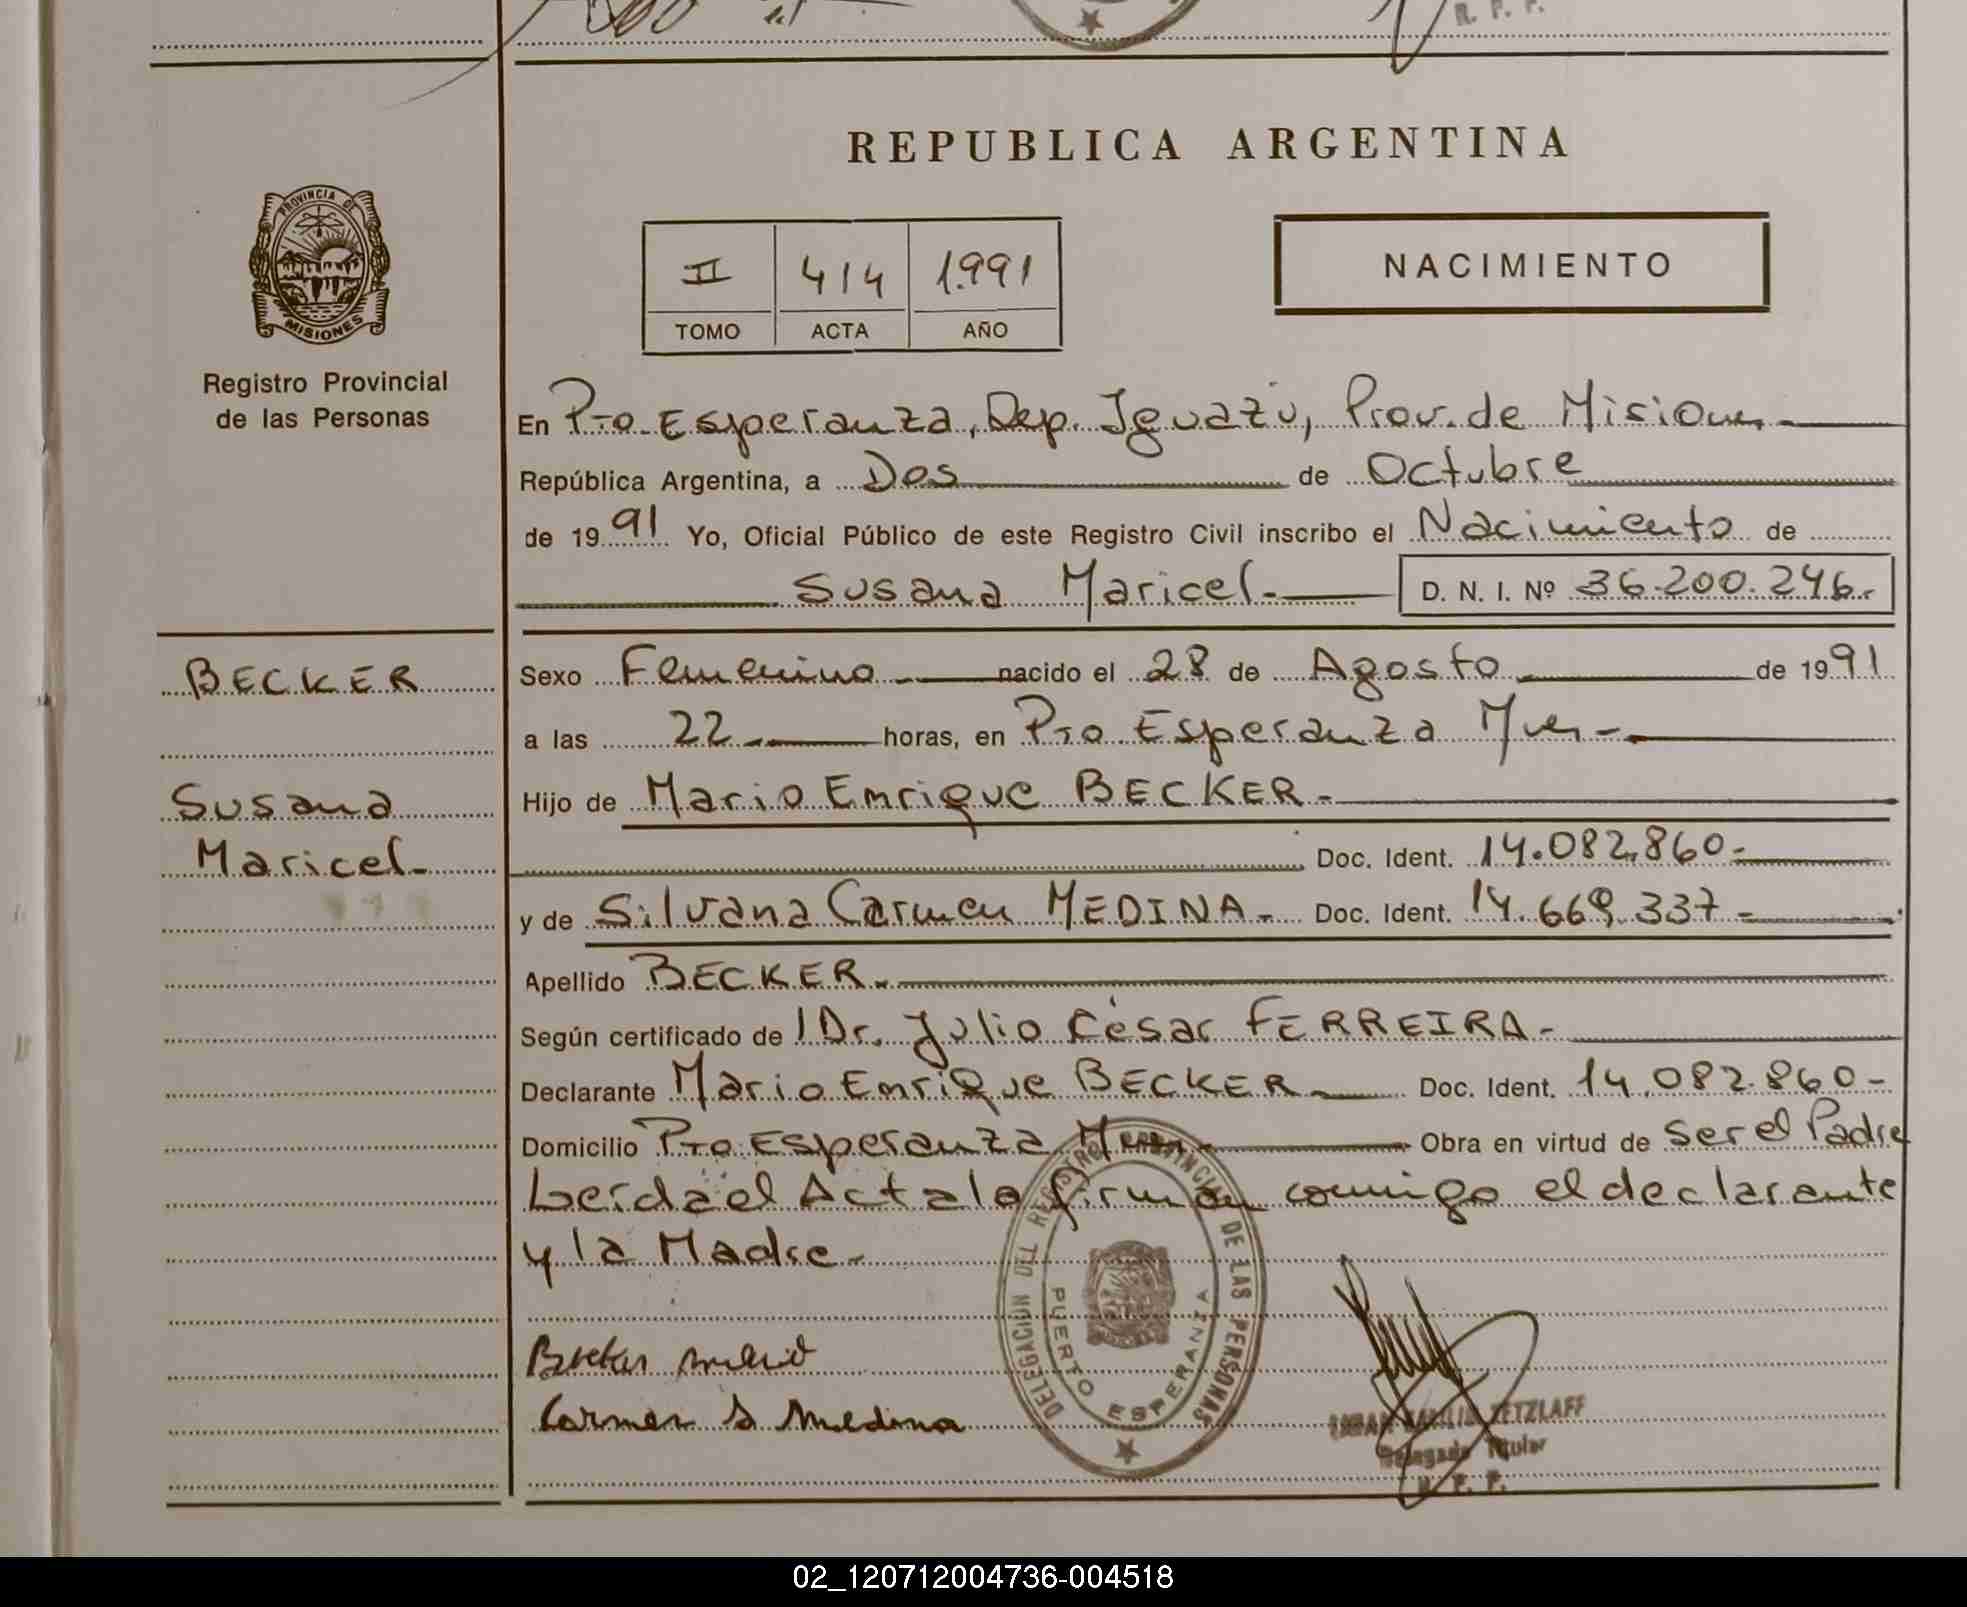 R. P. P.
REPUBLICA ARGENTINA
PROVINCIA DE
MISIONES
Registro Provincial
de las Personas
II 414 1.991
TOMO ACTA AÑO
NACIMIENTO
En Pto. Esperanza, Dep. Iguazú, Prov. de Misiones
República Argentina, a Dos de Octubre
de 1991 Yo, Oficial Público de este Registro Civil inscribo el Nacimiento de
Susana Maricel.- D. N. I. Nº 36.200.246.-
BECKER
Susana
Maricel-
Sexo Femenino nacido el 28 de Agosto de 1991
a las 22 horas, en Pto Esperanza Mnes-
Hijo de Mario Enrique BECKER-
Doc. Ident. 14.082.860-
y de Silvana Carmen MEDINA- Doc. Ident. 14.669.337-
Apellido BECKER-
Según certificado de Dr. Julio César FERREIRA-
Declarante Mario Enrique BECKER Doc. Ident. 14.082.860-
Domicilio Pto. Esperanza Mnes- Obra en virtud de Ser el Padre
Leida el Acta la firman conmigo el declarante
y la Madre-
Carmen S Medina
DELEGACION DEL REGISTRO PROVINCIAL DE LAS PERSONAS
PUERTO ESPERANZA
TETZLAFF
Delegado Titular
R. P. P.
02_120712004736-004518